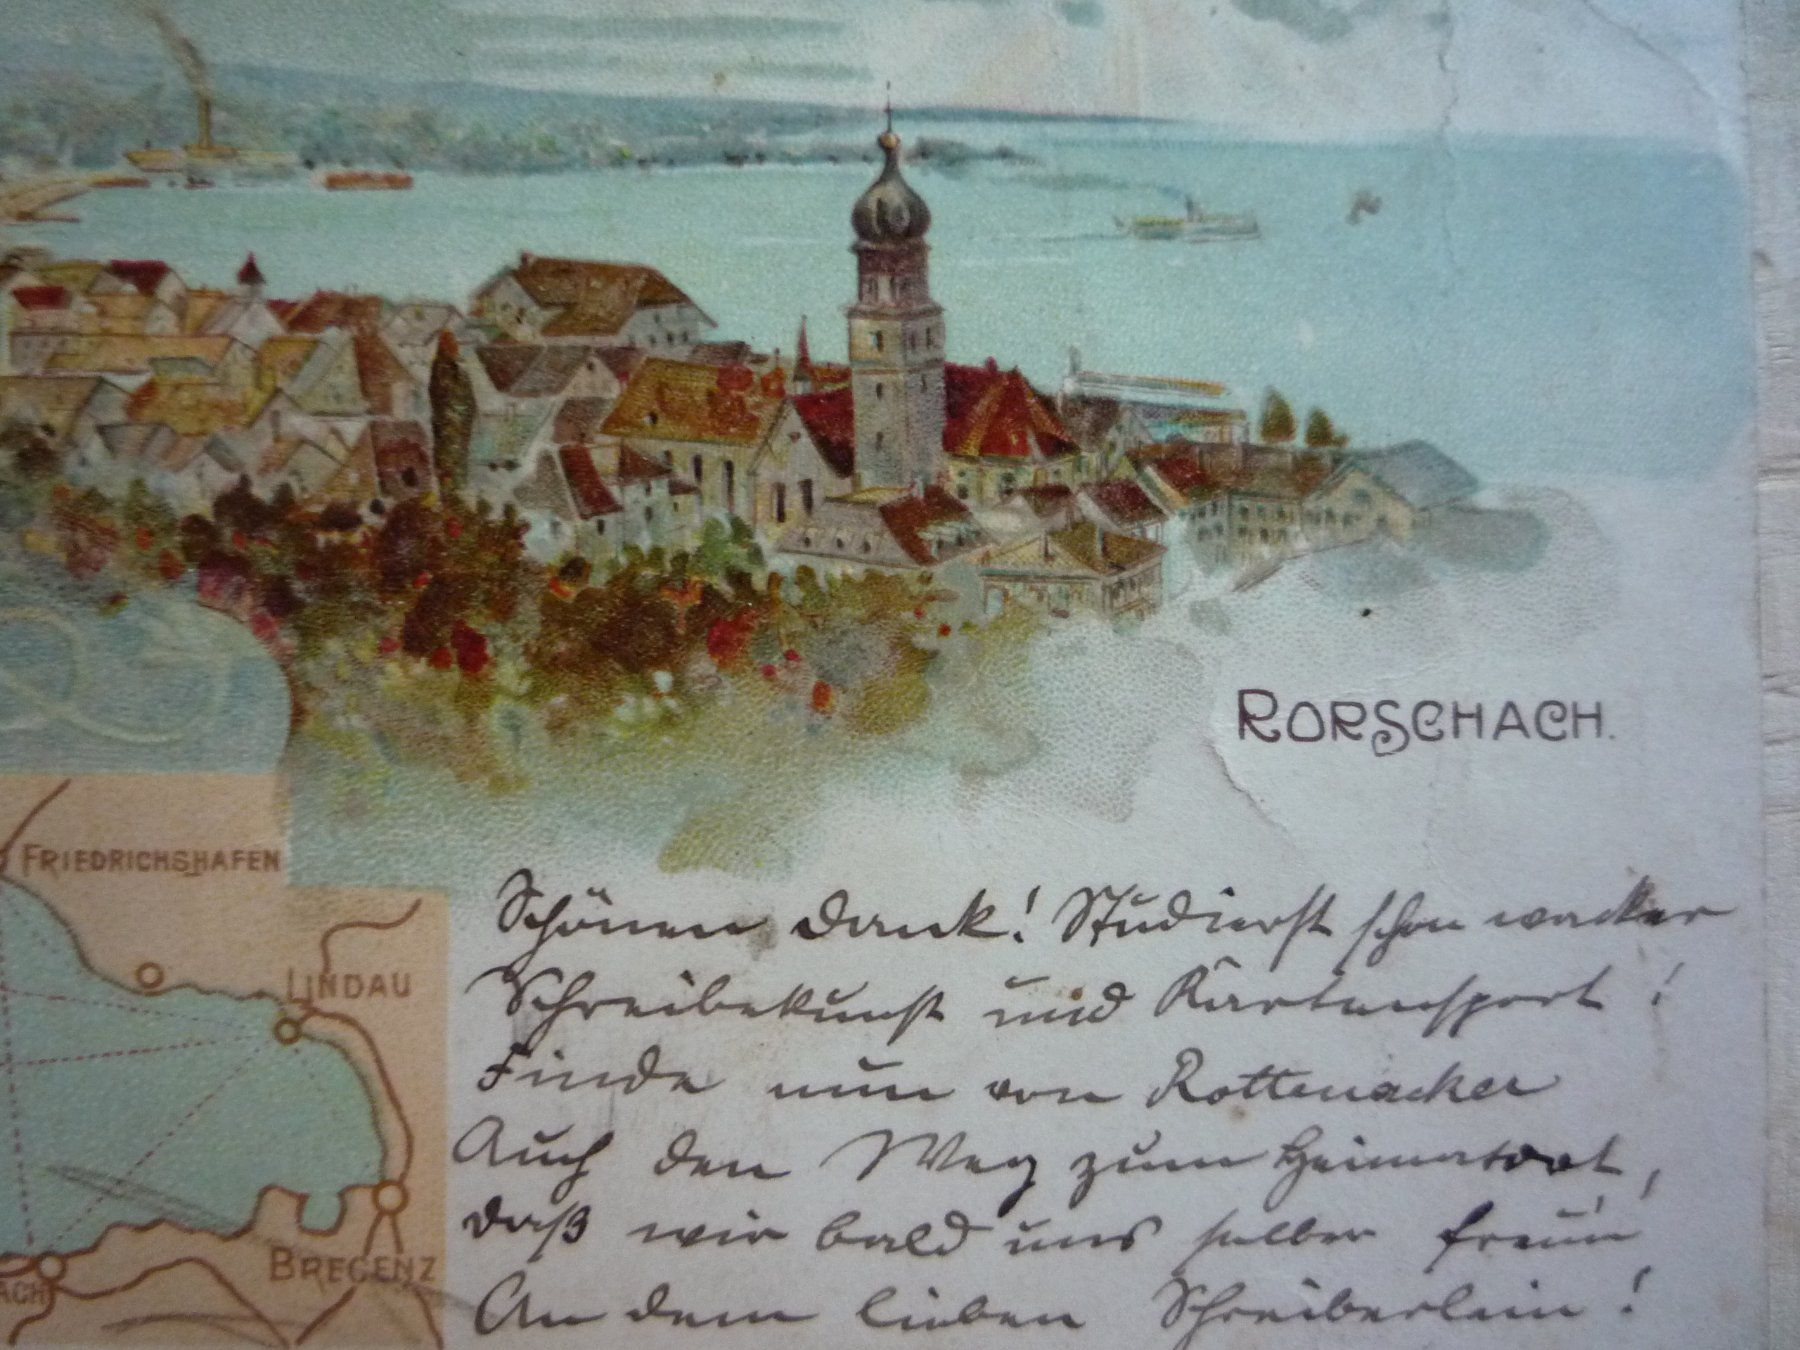 RORSCHACH.
FRIEDRICHSHAFEN
LINDAU
BREGENZ
ACH
Schönen Dank! Studierst schon wacker
Schreibekunst und Kartensport!
Finde nun von Rottenacker
Auch den Weg zum Heimatort,
Daß wir bald uns selber freun
An dem lieben Schreiberlein!